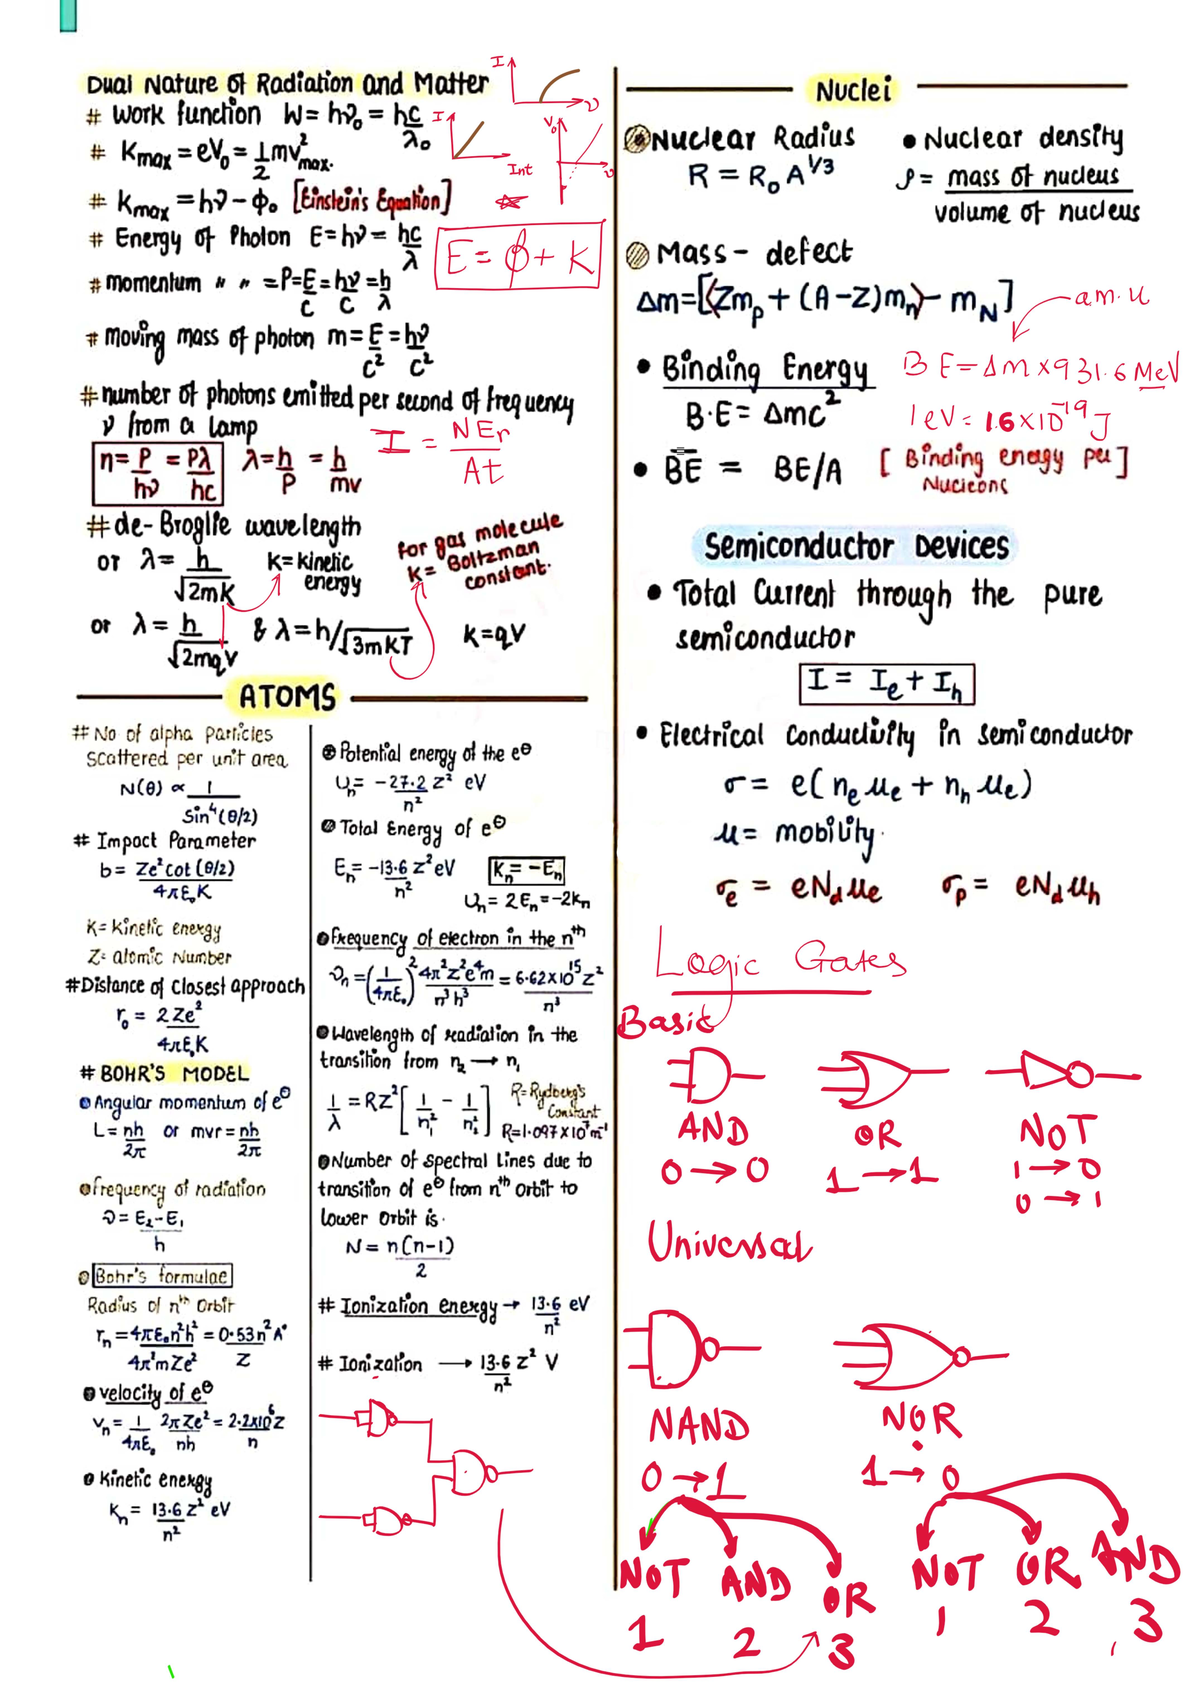 Dual Nature of Radiation and Matter
# Work function W = hν₀ = hc/λ₀
# Kmax = eV₀ = 1/2 mv²max.
# Kmax = hν - Φ₀ [Einstein's Equation]
# Energy of Photon E = hν = hc/λ
# momentum " " = P = E/C = hν/C = h/λ
# moving mass of photon m = E/c² = hν/c²
# number of photons emitted per second of frequency
ν from a lamp
n = P/hν = Pλ/hc λ = h/P = h/mv
# de-Broglie wavelength
or λ = h/√2mK K = kinetic energy
for gas molecule
K = Boltzman constant.
or λ = h/√2mqV & λ = h/√3mKT K = qV
I
ν
I
Int
V₀
ν
E = ϕ + K
I = NEr/At
ATOMS
# No of alpha Particles
Scattered per unit area
N(θ) ∝ 1/Sin⁴(θ/2)
# Impact Parameter
b = Ze² cot(θ/2)/4πε₀K
K = Kinetic energy
Z = atomic Number
# Distance of Closest approach
r₀ = 2Ze²/4πε₀K
# BOHR'S MODEL
Angular momentum of e⊖
L = nh/2π or mvr = nh/2π
frequency of radiation
ν = E₂-E₁/h
Bohr's formulae
Radius of nth Orbit
rn = 4πε₀n²h²/4π²mZe² = 0.53n²A°/Z
velocity of e⊖
Vn = 1/4πε₀ 2πZe²/nh = 2.2x10⁶Z/n
Kinetic energy
Kn = 13.6 z² eV/n²
Potential energy of the e⊖
Un = -27.2 z² eV/n²
Total Energy of e⊖
En = -13.6 z² eV/n² Kn = -En
Un = 2En = -2Kn
frequency of electron in the nth
νn = (1/4πε₀)² 4π²z²e⁴m/n³h³ = 6.62x10¹⁵z²/n³
Wavelength of radiation in the
transition from n₂ → n₁
1/λ = RZ² [1/n₁² - 1/n₂²] R = Rydberg's Constant
R = 1.097 X 10⁷m⁻¹
Number of spectral lines due to
transition of e⊖ from nth orbit to
lower orbit is.
N = n(n-1)/2
# Ionization energy → 13.6 eV/n²
# Ionization → 13.6 z² V/n²
Nuclei
Nuclear Radius
R = R₀ A^1/3
• Nuclear density
ρ = mass of nucleus/volume of nucleus
Mass - defect
Δm = [(Zmp + (A-Z)mn) - mN]
a.m.u
• Binding Energy
B.E = Δmc²
BE = Δm x 931.6 MeV
1eV = 1.6 x 10⁻¹⁹ J
• B̅E̅ = BE/A [Binding energy per Nucleons]
Semiconductor Devices
• Total Current through the pure
semiconductor
I = Ie + Ih
• Electrical Conductivity in semiconductor
σ = e(neμe + nhμe)
μ = mobility.
σe = eNdμe σp = eNdμh
Logic Gates
Basic
AND OR NOT
0 → 0 1 → 1 1 → 0
0 → 1
Universal
NAND NOR
0 → 1 1 → 0
NOT AND OR NOT OR AND
1 2 3 1 2 3